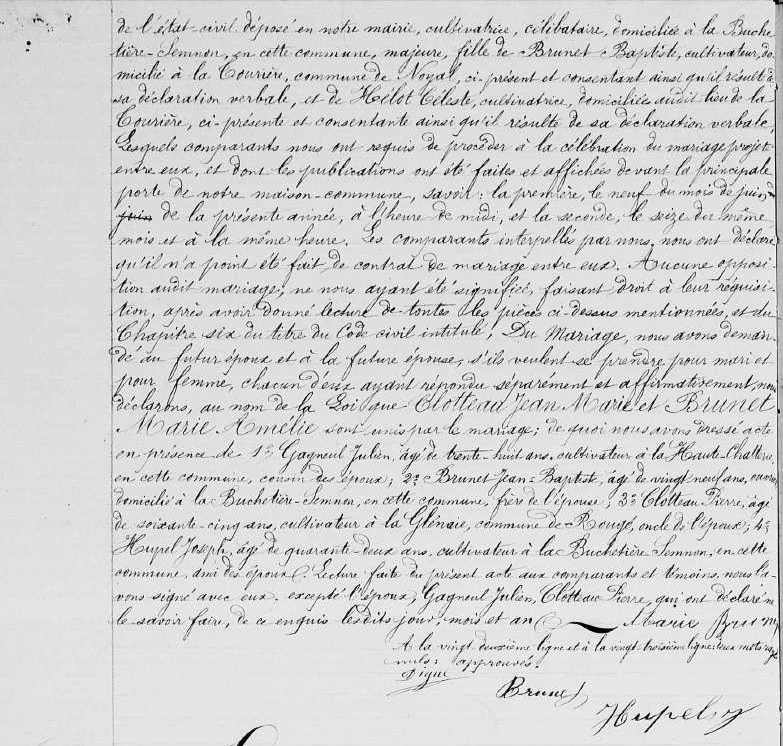 de l'état-civil déposé en notre mairie, cultivatrice, célibataire, domiciliée à la Buche-
tière-Semnon, en cette commune, majeure, fille de Brunet Baptiste, cultivateur, do-
micilié à la Courrière, commune de Noyal, ci-présent et consentant ainsi qu'il résulte de
sa déclaration verbale, et de Hélot Céleste, cultivatrice, domiciliée audit lieu de la
Courière, ci-présente et consentante ainsi qu'il résulte de sa déclaration verbale,
Lesquels comparants nous ont requis de procéder à la célébration du mariage projeté
entre eux, et dont les publications ont été faites et affichées devant la principale
porte de notre maison-commune, savoir: la première, le neuf du mois de juin,
juin de la présente année, à l'heure de midi, et la seconde, le seize du même
mois et à la même heure. Les comparants interpellés par nous, nous ont déclaré
qu'il n'a point été fait de contrat de mariage entre eux. Aucune opposi-
tion audit mariage, ne nous ayant été signifiée, faisant droit à leur réquisi-
tion, après avoir donné lecture de toutes les pièces ci-dessus mentionnées, et du
Chapitre six du titre du Code civil intitulé; Du Mariage, nous avons deman-
dé au futur époux et à la future épouse, s'ils veulent se prendre pour mari et
pour femme, chacun d'eux ayant répondu séparément et affirmativement, nous
déclarons, au nom de la Loi que Clotteau Jean Marie et Brunet
Marie Amélie sont unis par le mariage; de quoi nous avons dressé acte
en présence de 1º Gagneul Julien, âgé de trente-huit ans, cultivateur à la Haute-
en cette commune, cousin des époux; 2º Brunet Jean-Baptiste, âgé de vingt neuf ans,
domicilié à la Buchetière-Semnon, en cette commune, frère de l'épouse; 3º Clotteau Pierre, âgé
de soixante-cinq ans, cultivateur à la Glénaie, commune de Rougé, oncle de l'époux; 4º
Hupel Joseph, âgé de quarante-deux ans, cultivateur à la Buchetière-Semnon, en cette
commune, ami des époux. Lecture faite du présent acte aux comparants et témoins, nous l'a-
vons signé avec eux, excepté l'époux, Gagneul Julien, Clotteau Pierre, qui ont déclaré ne
le savoir faire, de ce enquis lesdits jour, mois et an Marie Brun
A la vingt deuxième ligne et à la vingt-troisième ligne: deux mots
nuls: approuvés.
Digue
Brunet
Hupel J